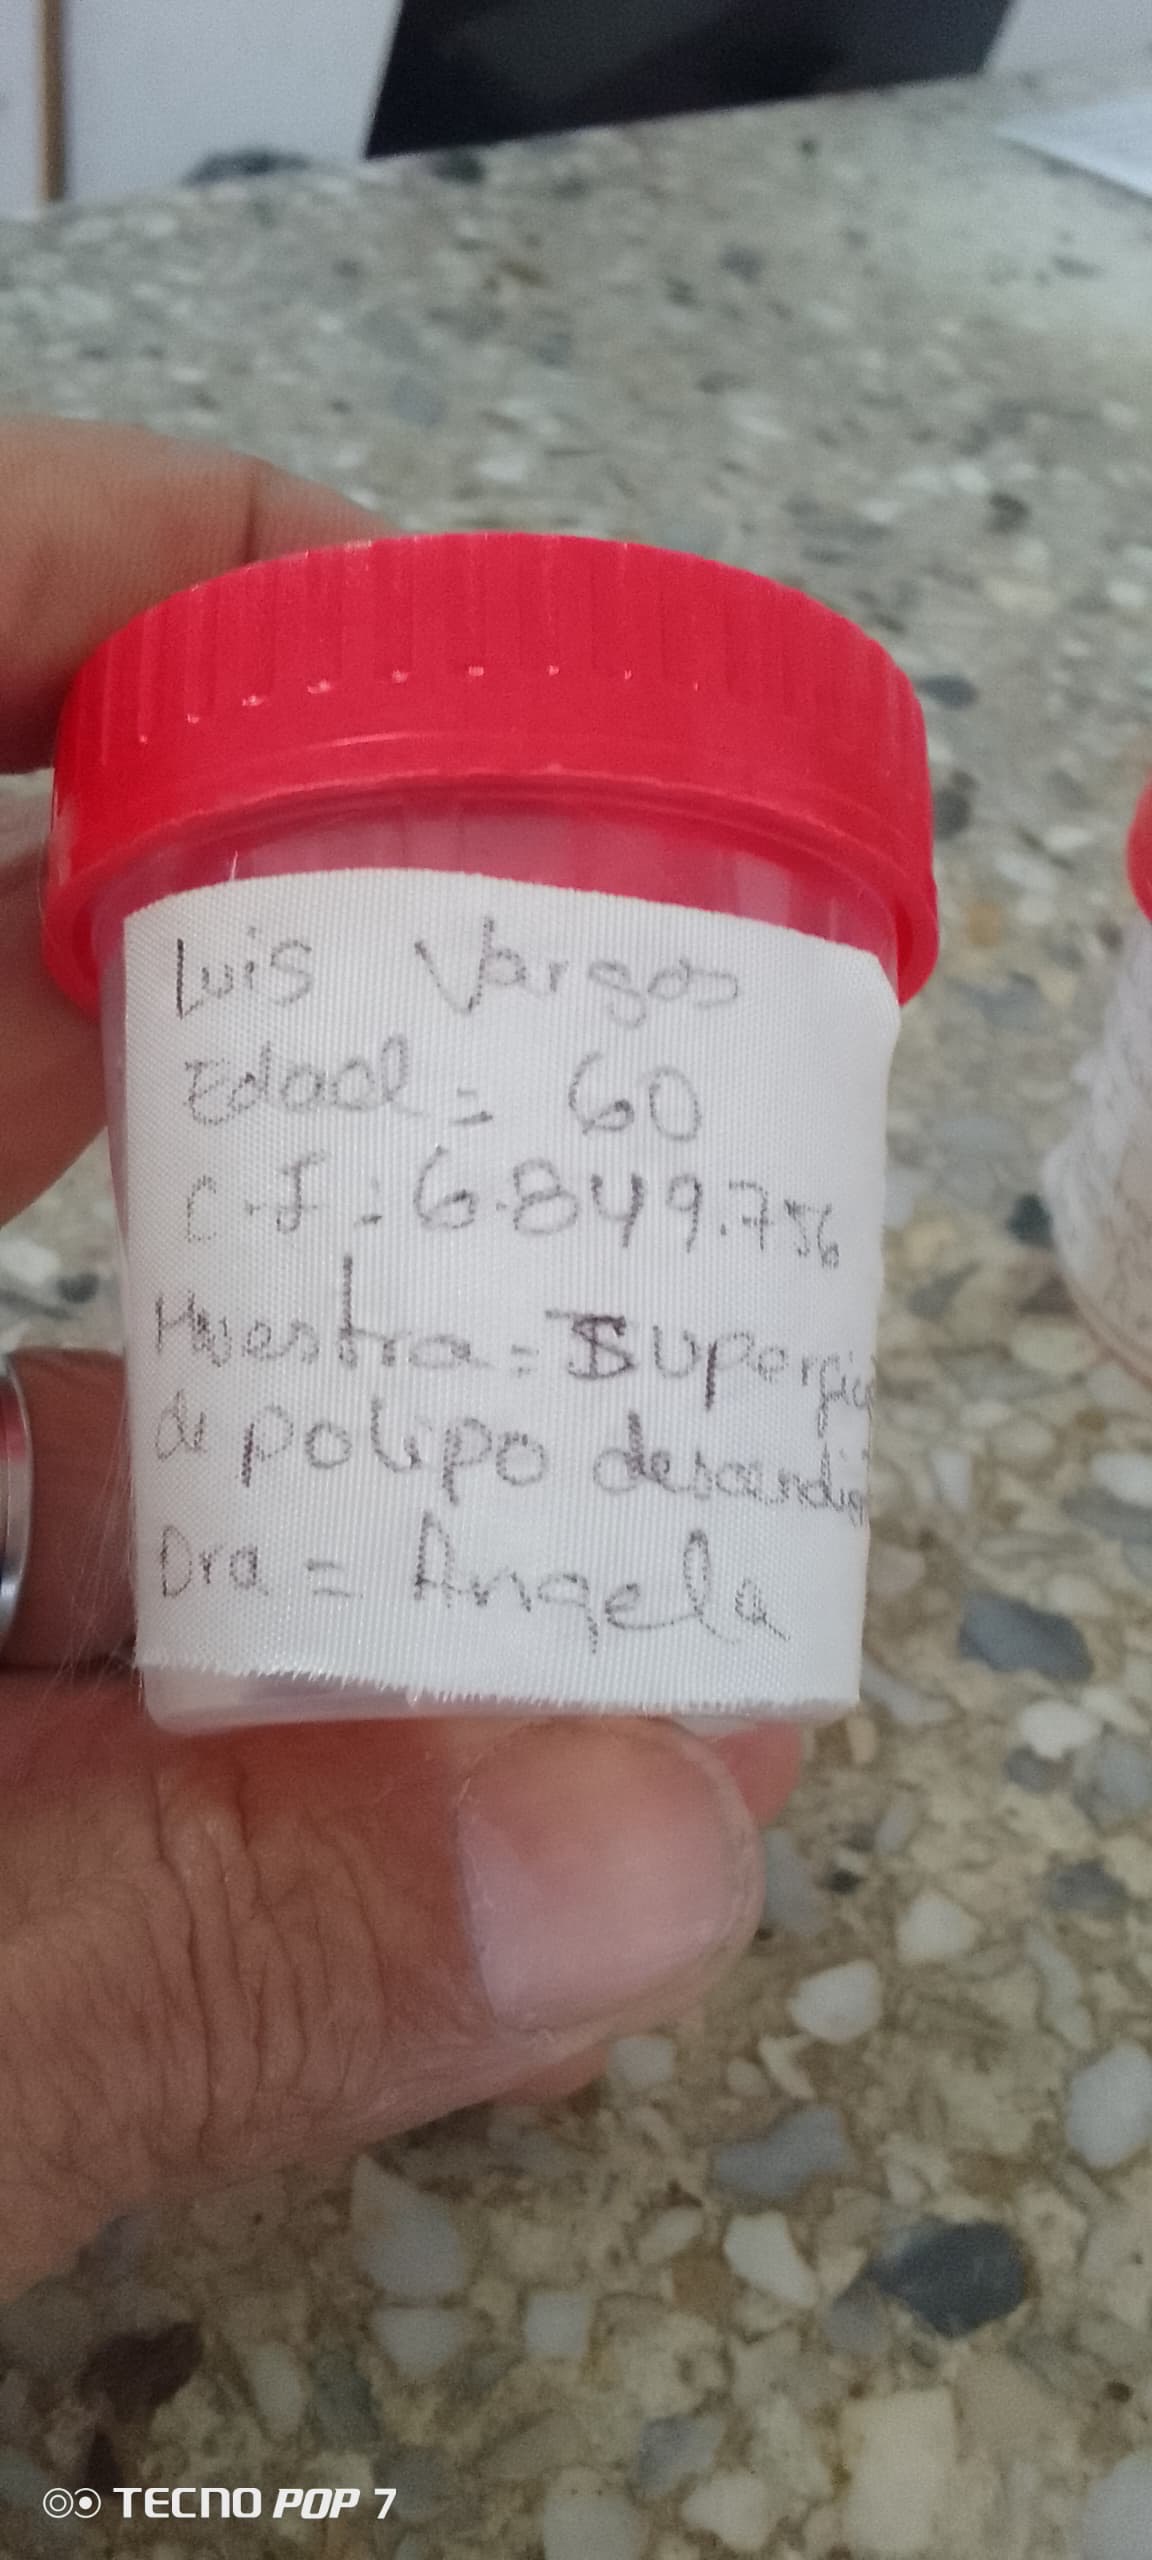 Luis Vargas
Edad = 60
C.I: 6.849.756
Muestra = Superfic
de polipo descendi
Dra = Angela
TECNO POP 7